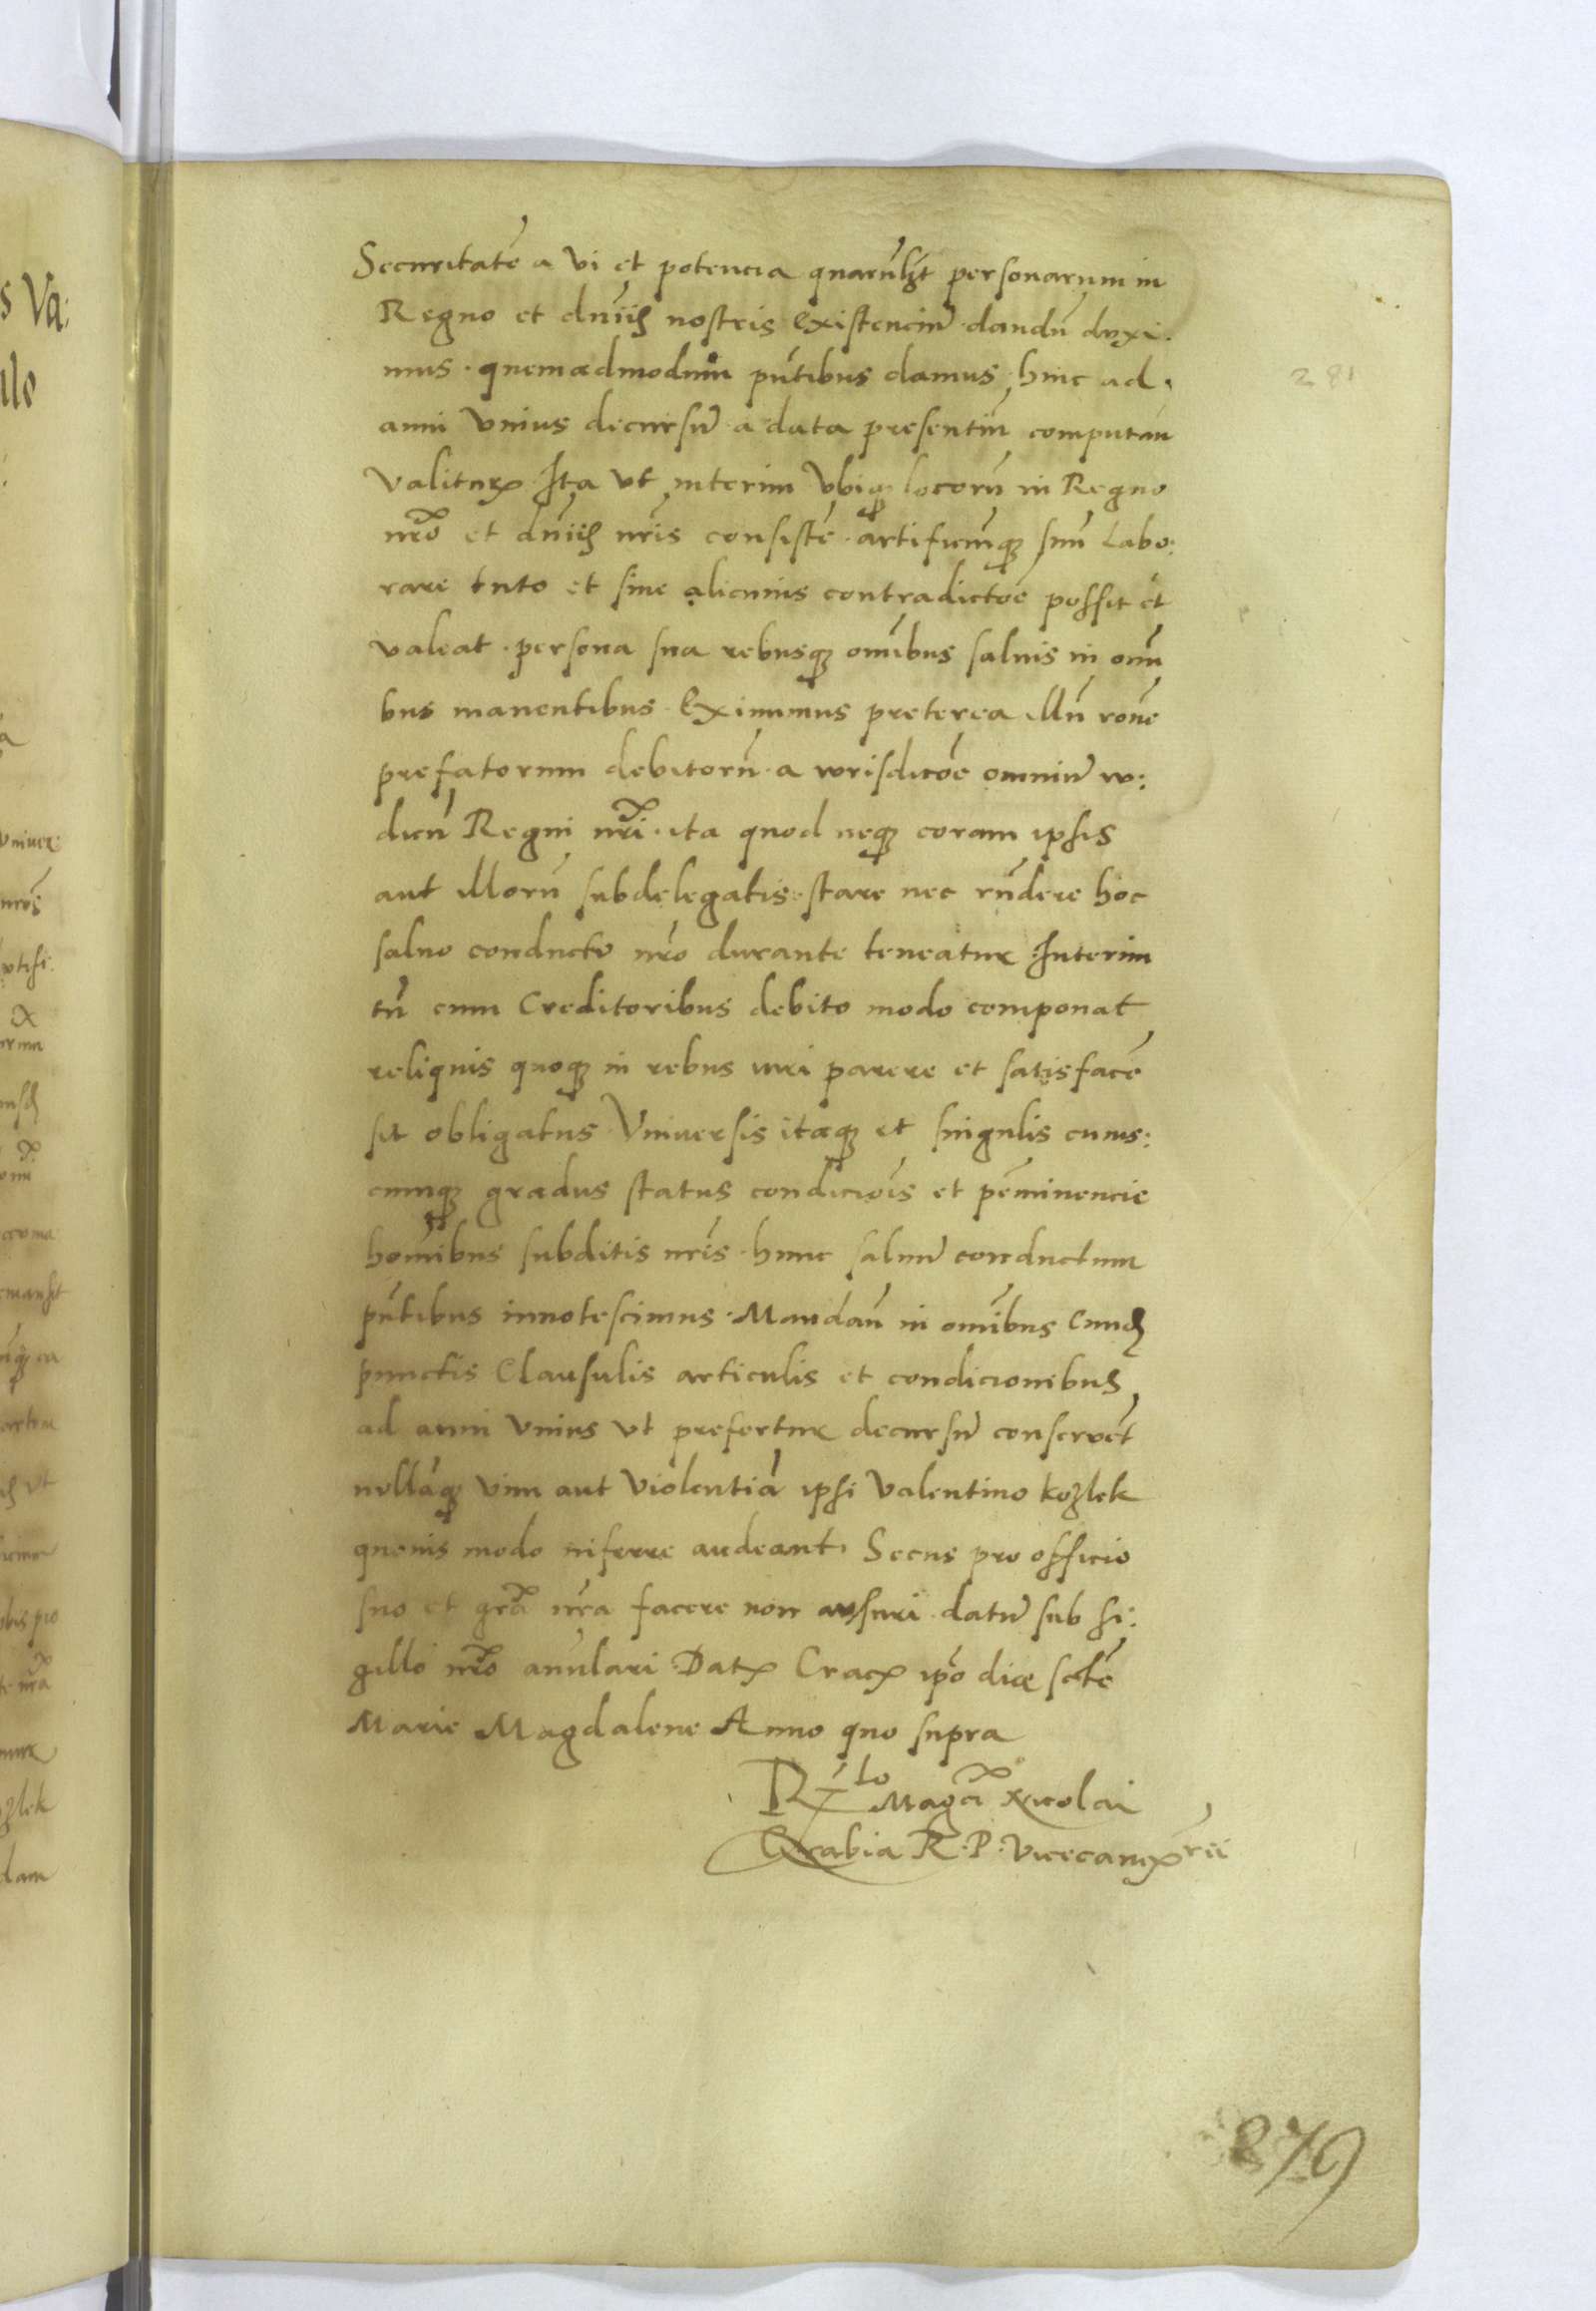 Securitatē a vi et potencia quarūlꝫt personarum in
Regno et dn̄iis nostris existenciū dandū duxi.
mus. quemadmodum pn̄tibus damus hinc ad.
anni vnius decursū a data presentiū computan̄
valiturꝝ Ita vt interim vbiqꝫ locorū in Regno
nr̄o et dn̄iis nr̄is consistē. artificiumqꝫ suū labo:
rare tuto et sine alicuius contradictōe possit et
valeat. persona sua rebusqꝫ om̄ibus saluis in om̄i
bus manentibus. Eximimus preterea illū rōne
prefatorum debitorū. a iurisdicōe omniū iu:
dicū Regni nr̄i. ita quod neqꝫ coram ipsis
aut illorū subdelegatis. stare nec rn̄dere hoc
saluo conductu nr̄o durante teneatur Interim
tn̄ cum Creditoribus debito modo componat
reliquis quoqꝫ in rebus iuri parere et satisfacē
sit obligatus. Vniuersis itaqꝫ et singulis cuius:
cumqꝫ gradus status condiciōis et p̄eminencie
hom̄ibus subditis nr̄is. hunc saluū conductum
pn̄tibus innotescimus. Mandan̄ in om̄ibus eiusd
punctis Clausulis articulis et condicionibus
ad anni vnius vt prefertur decursū conseruēt
nullāqꝫ vim aut violentiā ipsi Valentino kozlek
quouis modo inferre audeant. Secus pro officio
suo et gr̄a nr̄a facere non ausuri. datū sub si:
gillo nr̄o anulari. Datꝝ Cracꝝ ip̄o die sctē
Marie Magdalene Anno quo supra
Rlo Magci Nicolai
Crabia R. P. Vicecancꝝrii
281
279